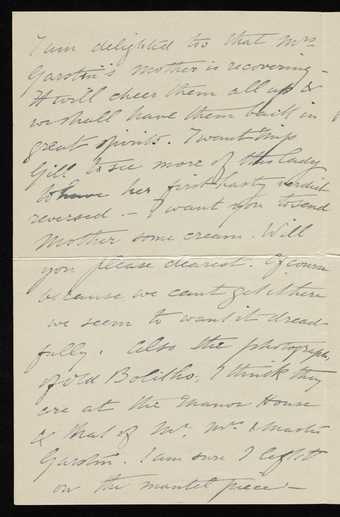 I am delighted too that Mrs
Garstin's Mother is recovering -
It will cheer them all up &
we shall have them back in
great spirits. I want Miss
Gill to see more of this lady
to have her first hasty verdict
reversed. - I want you to send
Mother some cream. Will
you please dearest. Of course
because we cant get it here
we seem to want it dread-
fully. Also the photographs
of Old Bolitho, I think they
are at the Manor House
& that of Mr, Mrs & Master
Garstin. I am sure I left it
on the mantel piece -